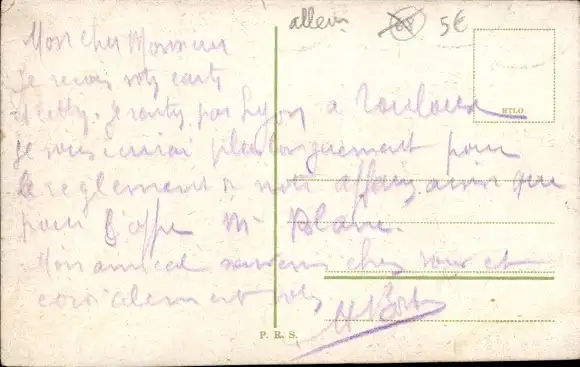 allem.
68 5€
Mon cher Monsieur
Je reçois votre carte
et cette. Je rentre par Lyon à Toulouse
je vous écrirai plus longuement pour
le reglement de notre affaire ainsi que
pour l'affre Mr Blanc.
Mon amical souvenir chez vous et
cordialement votre
HTLO
P. R. S.